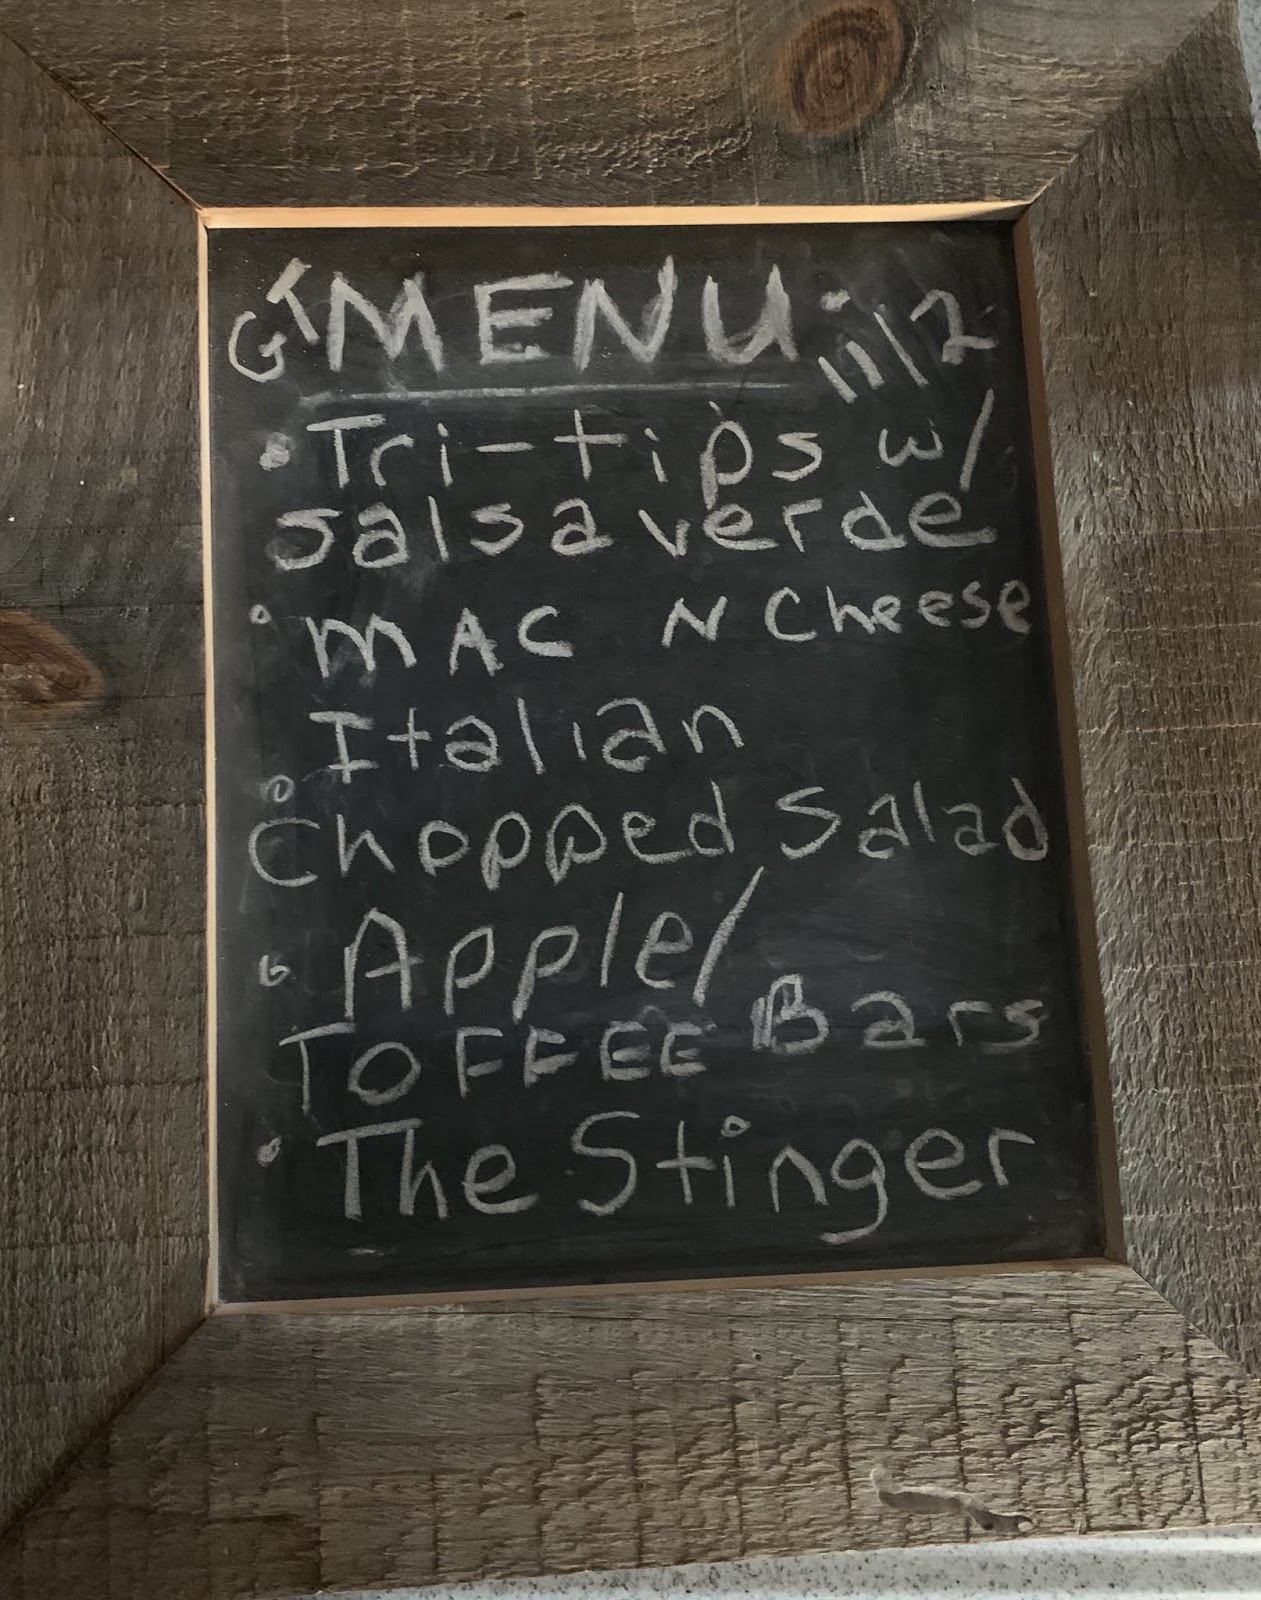 GT MENU: 11/2
• Tri-tips w/
salsa verde
• MAC N Cheese
Italian
• Chopped Salad
• Apple/
TOFFEE Bars
• The Stinger